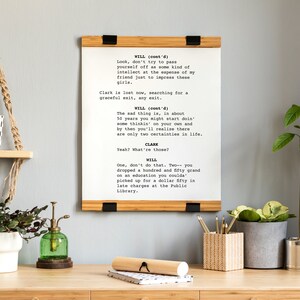 WILL (cont'd)
Look, don't try to pass
yourself off as some kind of
intellect at the expense of my
friend just to impress these
girls.
Clark is lost now, searching for a
graceful exit, any exit.
WILL (cont'd)
The sad thing is, in about
50 years you might start doin'
some thinkin' on your own and
by then you'll realize there
are only two certainties in life.
CLARK
Yeah? What're those?
WILL
One, don't do that. Two-- you
dropped a hundred and fifty grand
on an education you coulda'
picked up for a dollar fifty in
late charges at the Public
Library.